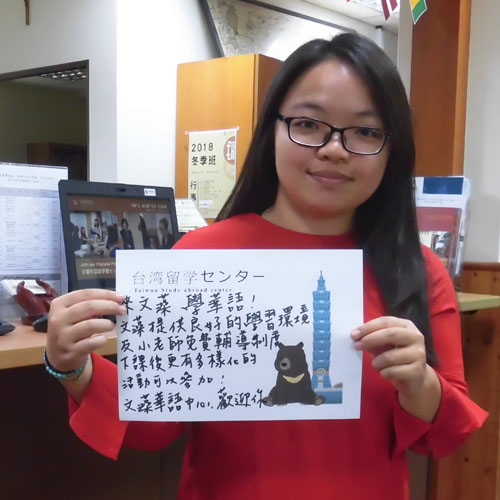 2018
冬季班
台湾留学センター
Taiwan Study abroad center
来文藻、學華語！
文藻提供良好的學習環境
及小老師免費輔導制度
下課後更有多樣化的
活動可以參加！
文藻華語中心，歡迎你